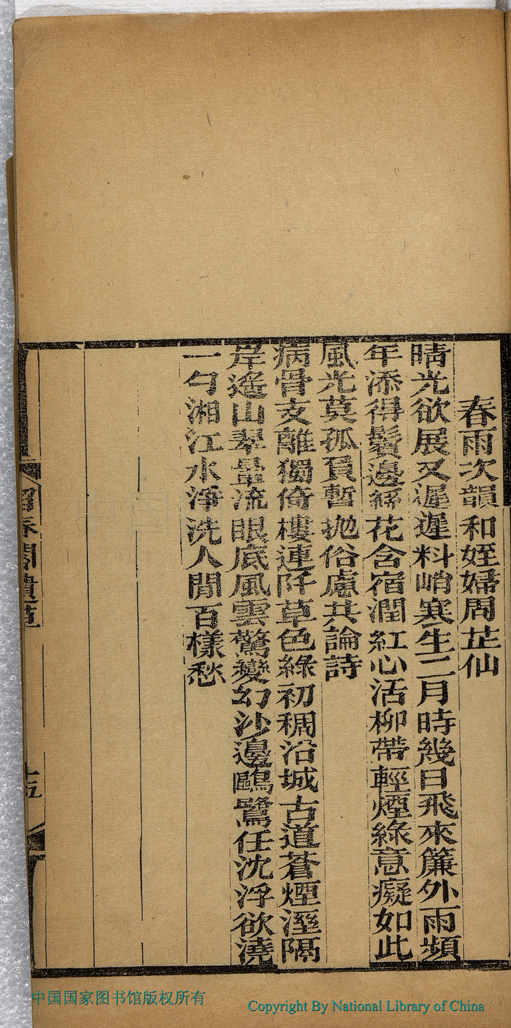 春雨次韻和姪婦周芷仙
晴光欲展又遲遲料峭寒生二月時幾日飛來簾外雨頻
年添得鬢邊絲花含宿潤紅心活柳帶輕煙綠意癡如此
風光莫孤負暫拋俗慮共論詩
病骨支離獨倚樓連阡草色綠初稠沿城古道蒼煙溼隔
岸遙山翠暈流眼底風雲驚變幻沙邊鷗鷺任沈浮欲澆
一勺湘江水淨洗人閒百樣愁
中国国家图书馆版权所有
Copyright By National Library of China